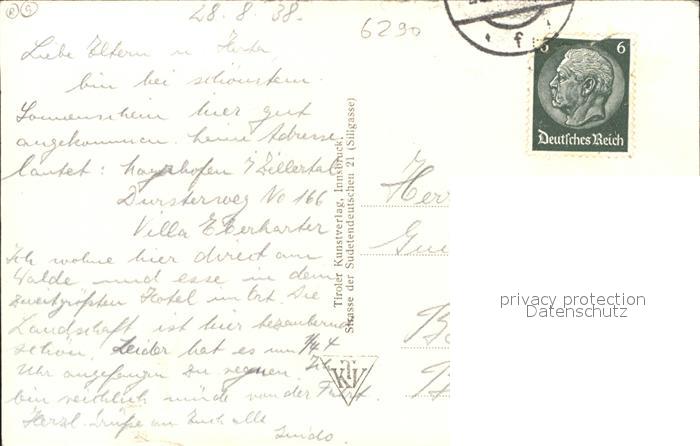 28.8.38.
6290
Liebe Eltern u Herta,
bin bei schönstem
Sonnenschein hier gut
angekommen. Meine Adresse
lautet: Mayrhofen i/Zillertal
Dursterweg No 166
Villa Eberharter
Ich wohne hier direct am
Walde und esse in dem
zweitgrößten Hotel im Ort. Die
Landschaft ist hier bezaubernd
schön. Leider hat es um 1/4 4
Uhr angefangen zu regnen. Ich
bin reichlich müde von der Fahrt.
Herzl. Grüße an Euch alle
Guido.
Tiroler Kunstverlag, Innsbruck,
Strasse der Sudetendeutschen 21 (Sillgasse)
KTV
6 6
Deutsches Reich
f
Herr
Gui
privacy protection
Datenschutz